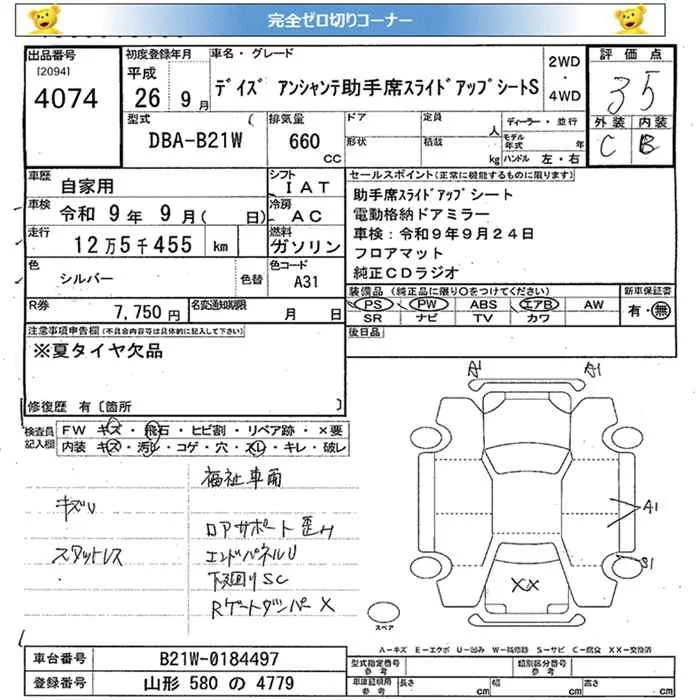 完全ゼロ切りコーナー
出品番号
[2094]
4074
初度登録年月
平成
26 9月
車名・グレード
デイズ アンシャンテ助手席スライドアップシートS
2WD
・
4WD
評価点
35
外装 内装
C B
型式
DBA-B21W
排気量
660
CC
ドア
形状
定員
人
積載
kg
ディーラー・並行
モデル年式 年
ハンドル 左・右
車歴
自家用
シフト
IAT
車検
令和 9年 9月( 日)
冷房
AC
走行
12万5千455 km
燃料
ガソリン
色
シルバー
色替
色コード
A31
R券
7,750円
名変通知期限
月 日
セールスポイント(正常に機能するものに限ります)
助手席スライドアップシート
電動格納ドアミラー
車検:令和9年9月24日
フロアマット
純正CDラジオ
装備品(純正品に限り○をつけてください)
PS PW ABS エアB AW
SR ナビ TV カワ
新車保証書
有・無
後日品
注意事項申告欄(不具合内容等は具体的に記入して下さい)
※夏タイヤ欠品
修復歴 有〔箇所 〕
検査員記入欄
FW キズ・飛石・ヒビ割・リペア跡・×要
内装 キズ・汚レ・コゲ・穴・スレ・キレ・破レ
福祉車両
キズU
ロアサポート歪H
スタットレス
エンドパネルU
下廻りSC
RゲートダンパーX
A1 A1
A1
S1
XX
スペア
A-キズ E-エクボ U-凹み W-補修跡 S-サビ C-腐食 XX-交換済
車台番号
B21W-0184497
登録番号
山形 580 の 4779
型式指定番号
参考
類別区分番号
参考
車庫証明用
参考
長さ cm
幅 cm
高さ cm